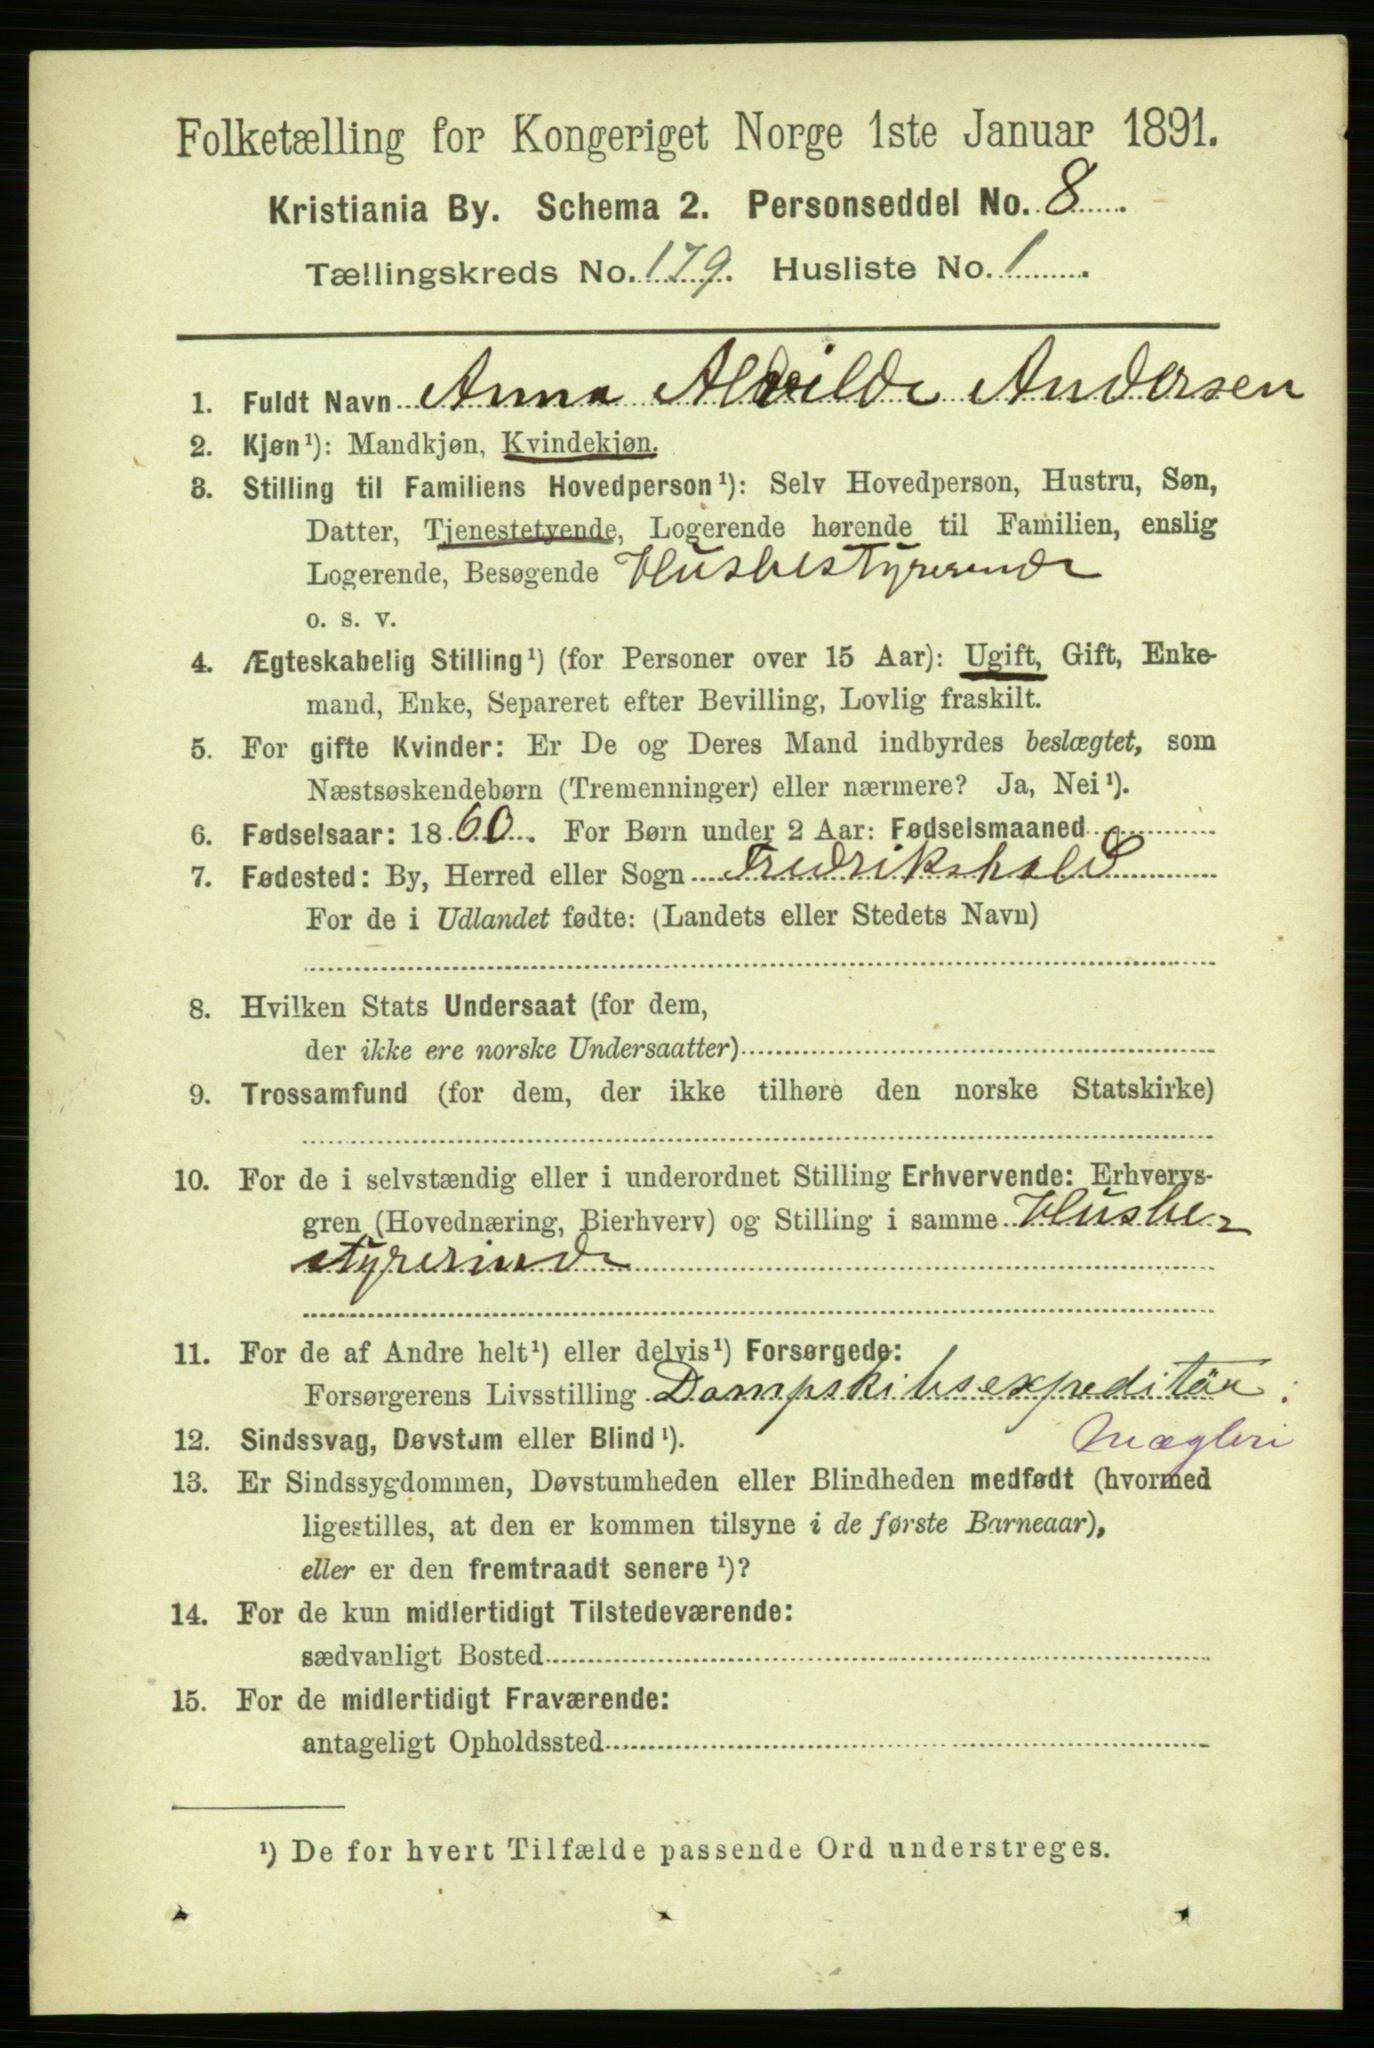 Folketælling for Kongeriget Norge 1ste Januar 1891.
Kristiania By. Schema 2. Personseddel No. 8.
Tællingskreds No. 179. Husliste No. 1.
1. Fuldt Navn Anna Alvilde Andersen
2. Kjøn¹): Mandkjøn, Kvindekjøn.
3. Stilling til Familiens Hovedperson¹): Selv Hovedperson, Hustru, Søn,
Datter, Tjenestetyende, Logerende hørende til Familien, enslig
Logerende, Besøgende Husbestyrerende
o. s. v.
4. Ægteskabelig Stilling¹) (for Personer over 15 Aar): Ugift, Gift, Enke-
mand, Enke, Separeret efter Bevilling, Lovlig fraskilt.
5. For gifte Kvinder: Er De og Deres Mand indbyrdes beslægtet, som
Næstsøskendebørn (Tremenninger) eller nærmere? Ja, Nei¹).
6. Fødselsaar: 1860. For Børn under 2 Aar: Fødselsmaaned
7. Fødested: By, Herred eller Sogn Fredrikshald
For de i Udlandet fødte: (Landets eller Stedets Navn)
8. Hvilken Stats Undersaat (for dem,
der ikke ere norske Undersaatter)
9. Trossamfund (for dem, der ikke tilhøre den norske Statskirke)
10. For de i selvstændig eller i underordnet Stilling Erhvervende: Erhvervs-
gren (Hovednæring, Bierhverv) og Stilling i samme Husbe-
styrerinde
11. For de af Andre helt¹) eller delvis¹) Forsørgede:
Forsørgerens Livsstilling Dampskibsexpeditör:
Mægleri
12. Sindssvag, Døvstum eller Blind¹).
13. Er Sindssygdommen, Døvstumheden eller Blindheden medfødt (hvormed
ligestilles, at den er kommen tilsyne i de første Barneaar),
eller er den fremtraadt senere¹)?
14. For de kun midlertidigt Tilstedeværende:
sædvanligt Bosted
15. For de midlertidigt Fraværende:
antageligt Opholdssted
¹) De for hvert Tilfælde passende Ord understreges.